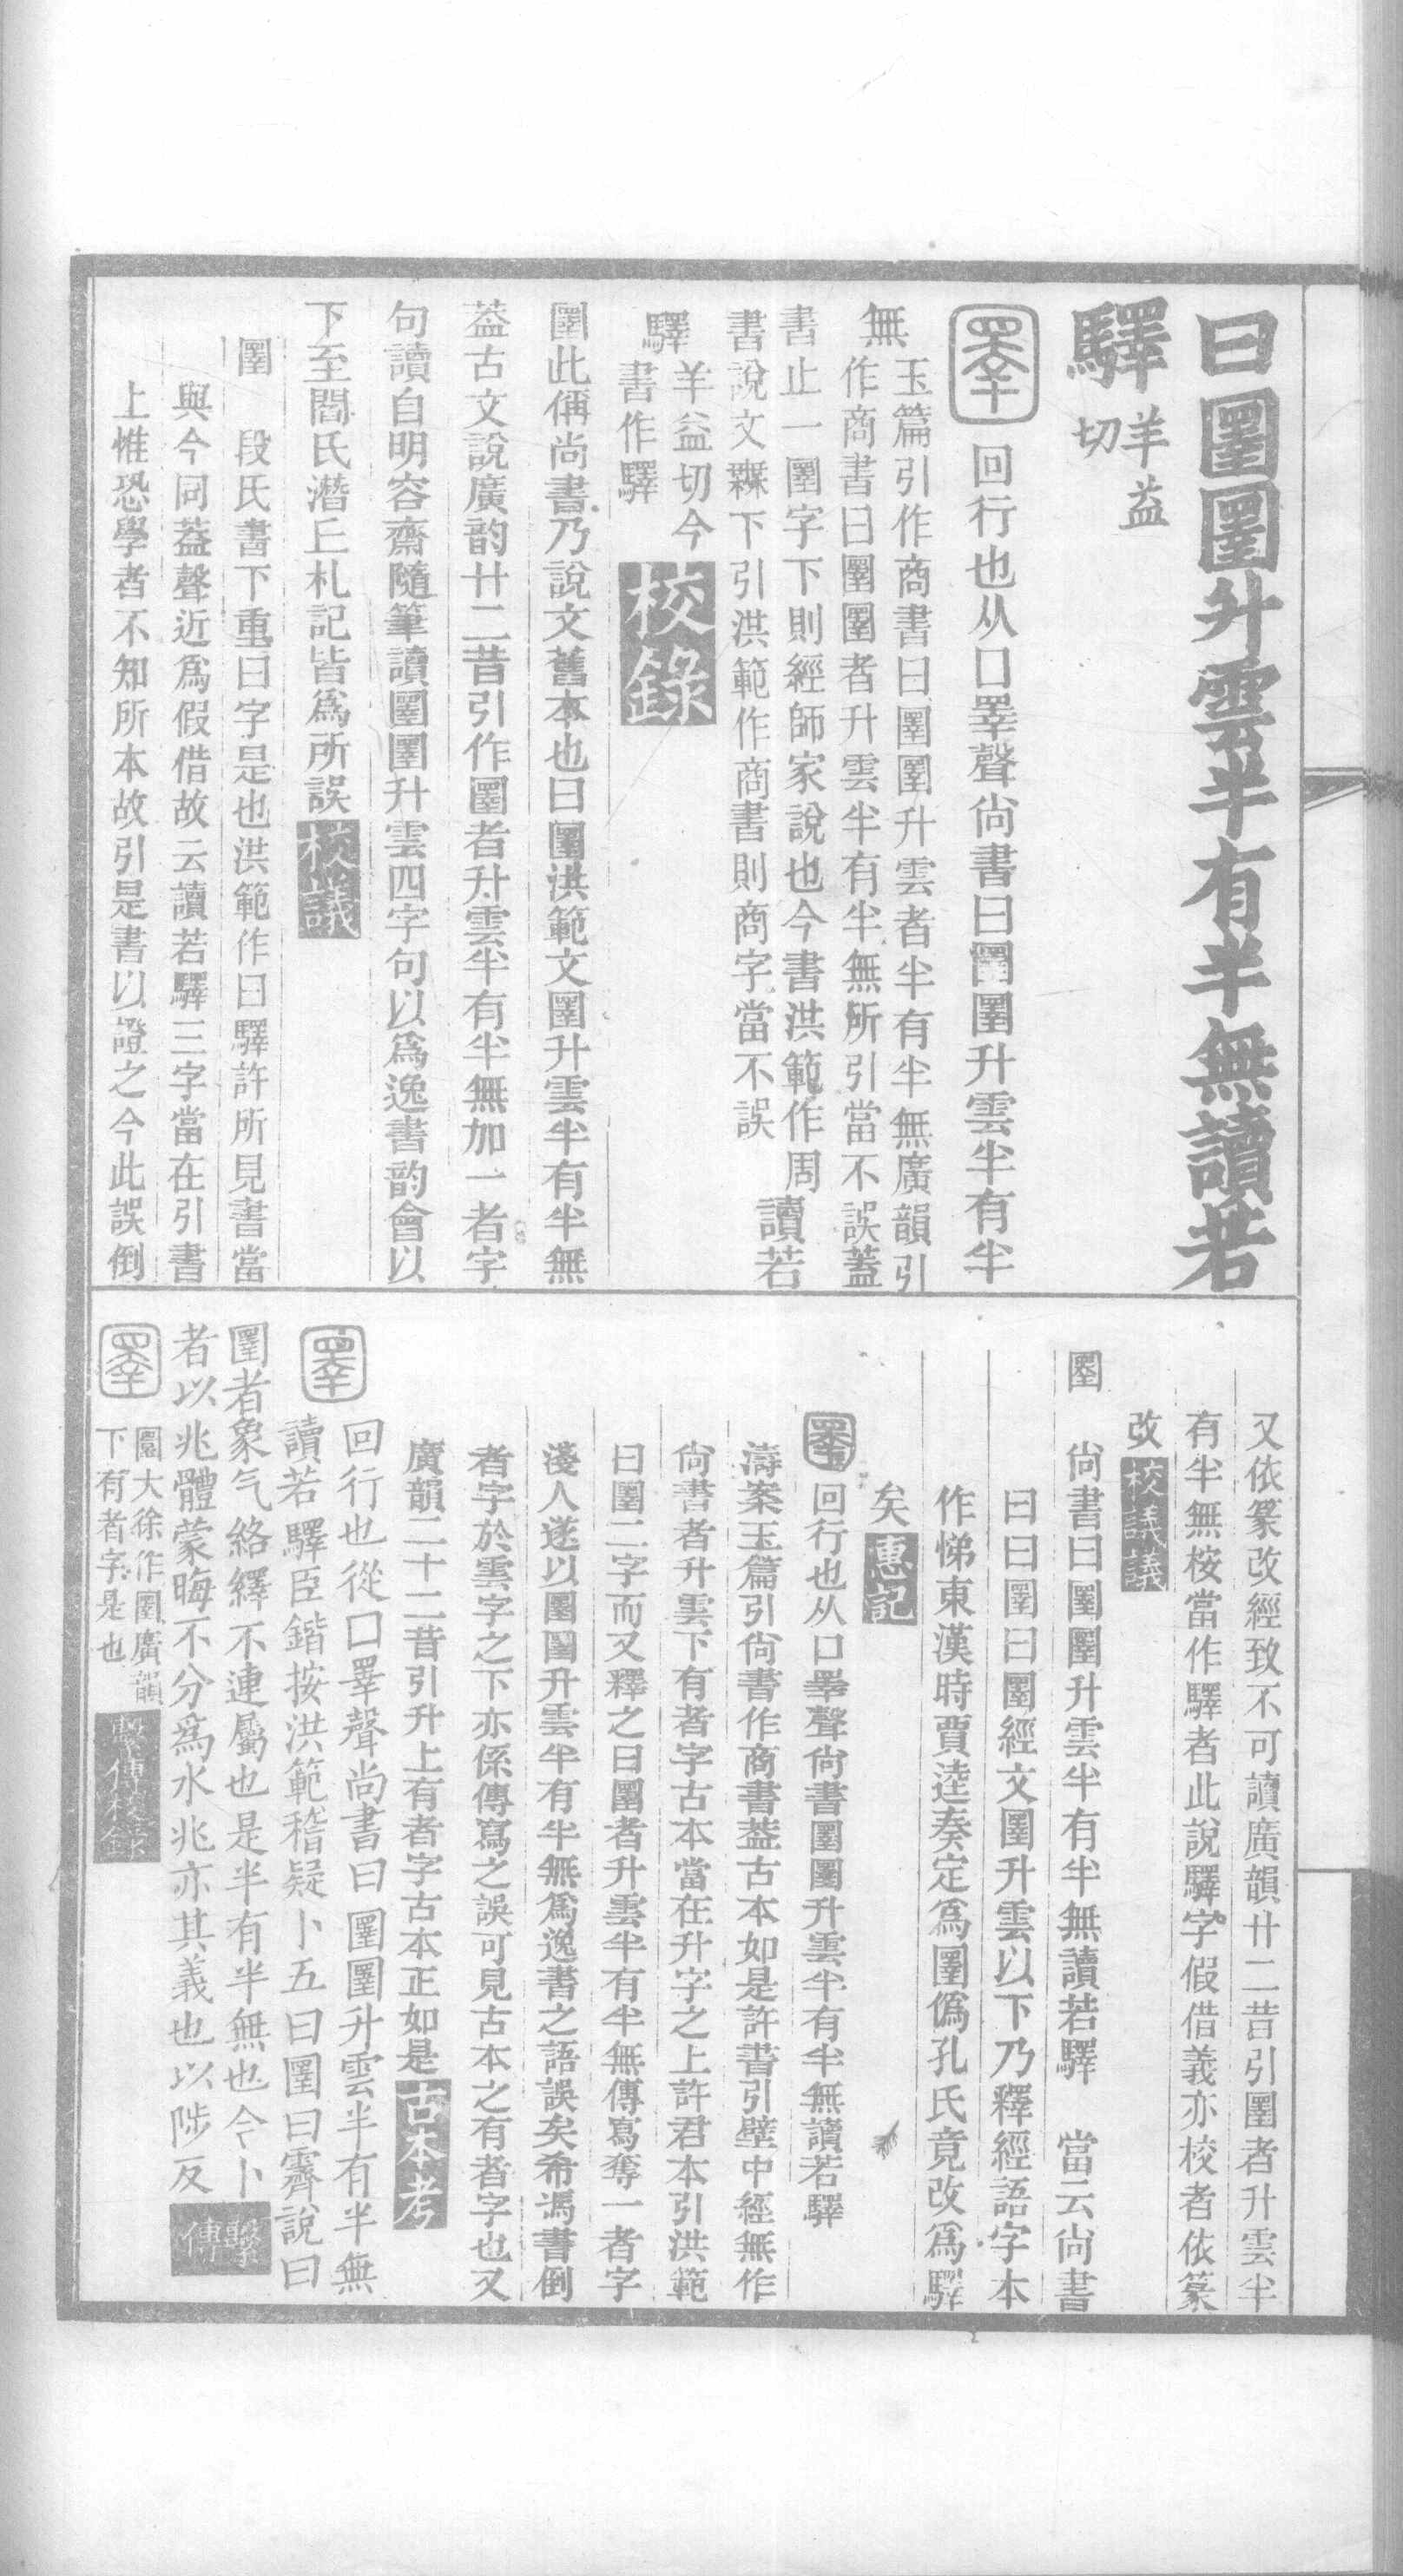 曰圛圛升雲半有半無讀若
驛羊益切
圛回行也从囗睪聲尚書曰圛圛升雲半有半
無玉篇引作商書曰圛圛升雲者半有半無廣韻引
作商書曰圛圛者升雲半有半無所引當不誤蓋
書止一圛字下則經師家說也今書洪範作周
書說文𣞤下引洪範作商書則商字當不誤讀若
驛羊益切今
書作驛校錄
圛此偁尚書乃說文舊本也曰圛洪範文圛升雲半有半無
葢古文說廣韵廿二昔引作圛者升雲半有半無加一者字
句讀自明容齋隨筆讀圛圛升雲四字句以爲逸書韵會以
下至閻氏潛丘札記皆爲所誤校議
圛　段氏書下重曰字是也洪範作曰驛許所見書當
與今同蓋聲近爲假借故云讀若驛三字當在引書
上惟恐學者不知所本故引是書以證之今此誤倒
又依篆改經致不可讀廣韻廿二昔引圛者升雲半
有半無桉當作驛者此說驛字假借義亦校者依篆
改校議議
圛　尚書曰圛圛升雲半有半無讀若驛　當云尚書
曰曰圛曰圛經文圛升雲以下乃釋經語字本
作悌東漢時賈逵奏定爲圛僞孔氏竟改爲驛
矣惠記
圛回行也从囗睪聲尚書圛圛升雲半有半無讀若驛
濤案玉篇引尚書作商書葢古本如是許書引壁中經無作
尚書者升雲下有者字古本當在升字之上許君本引洪範
曰圛二字而又釋之曰圛者升雲半有半無傳寫奪一者字
淺人遂以圛圛升雲半有半無爲逸書之語誤矣希馮書倒
者字於雲字之下亦係傳寫之誤可見古本之有者字也又
廣韻二十二昔引升上有者字古本正如是古本考
圛回行也從囗睪聲尚書曰圛圛升雲半有半無
讀若驛臣鍇按洪範稽疑卜五曰圛曰霽說曰
圛者象气絡繹不連屬也是半有半無也今卜
者以兆體蒙晦不分爲水兆亦其義也以陟反繫傳
圛圛大徐作圛廣韻
下有者字是也繫傳校錄